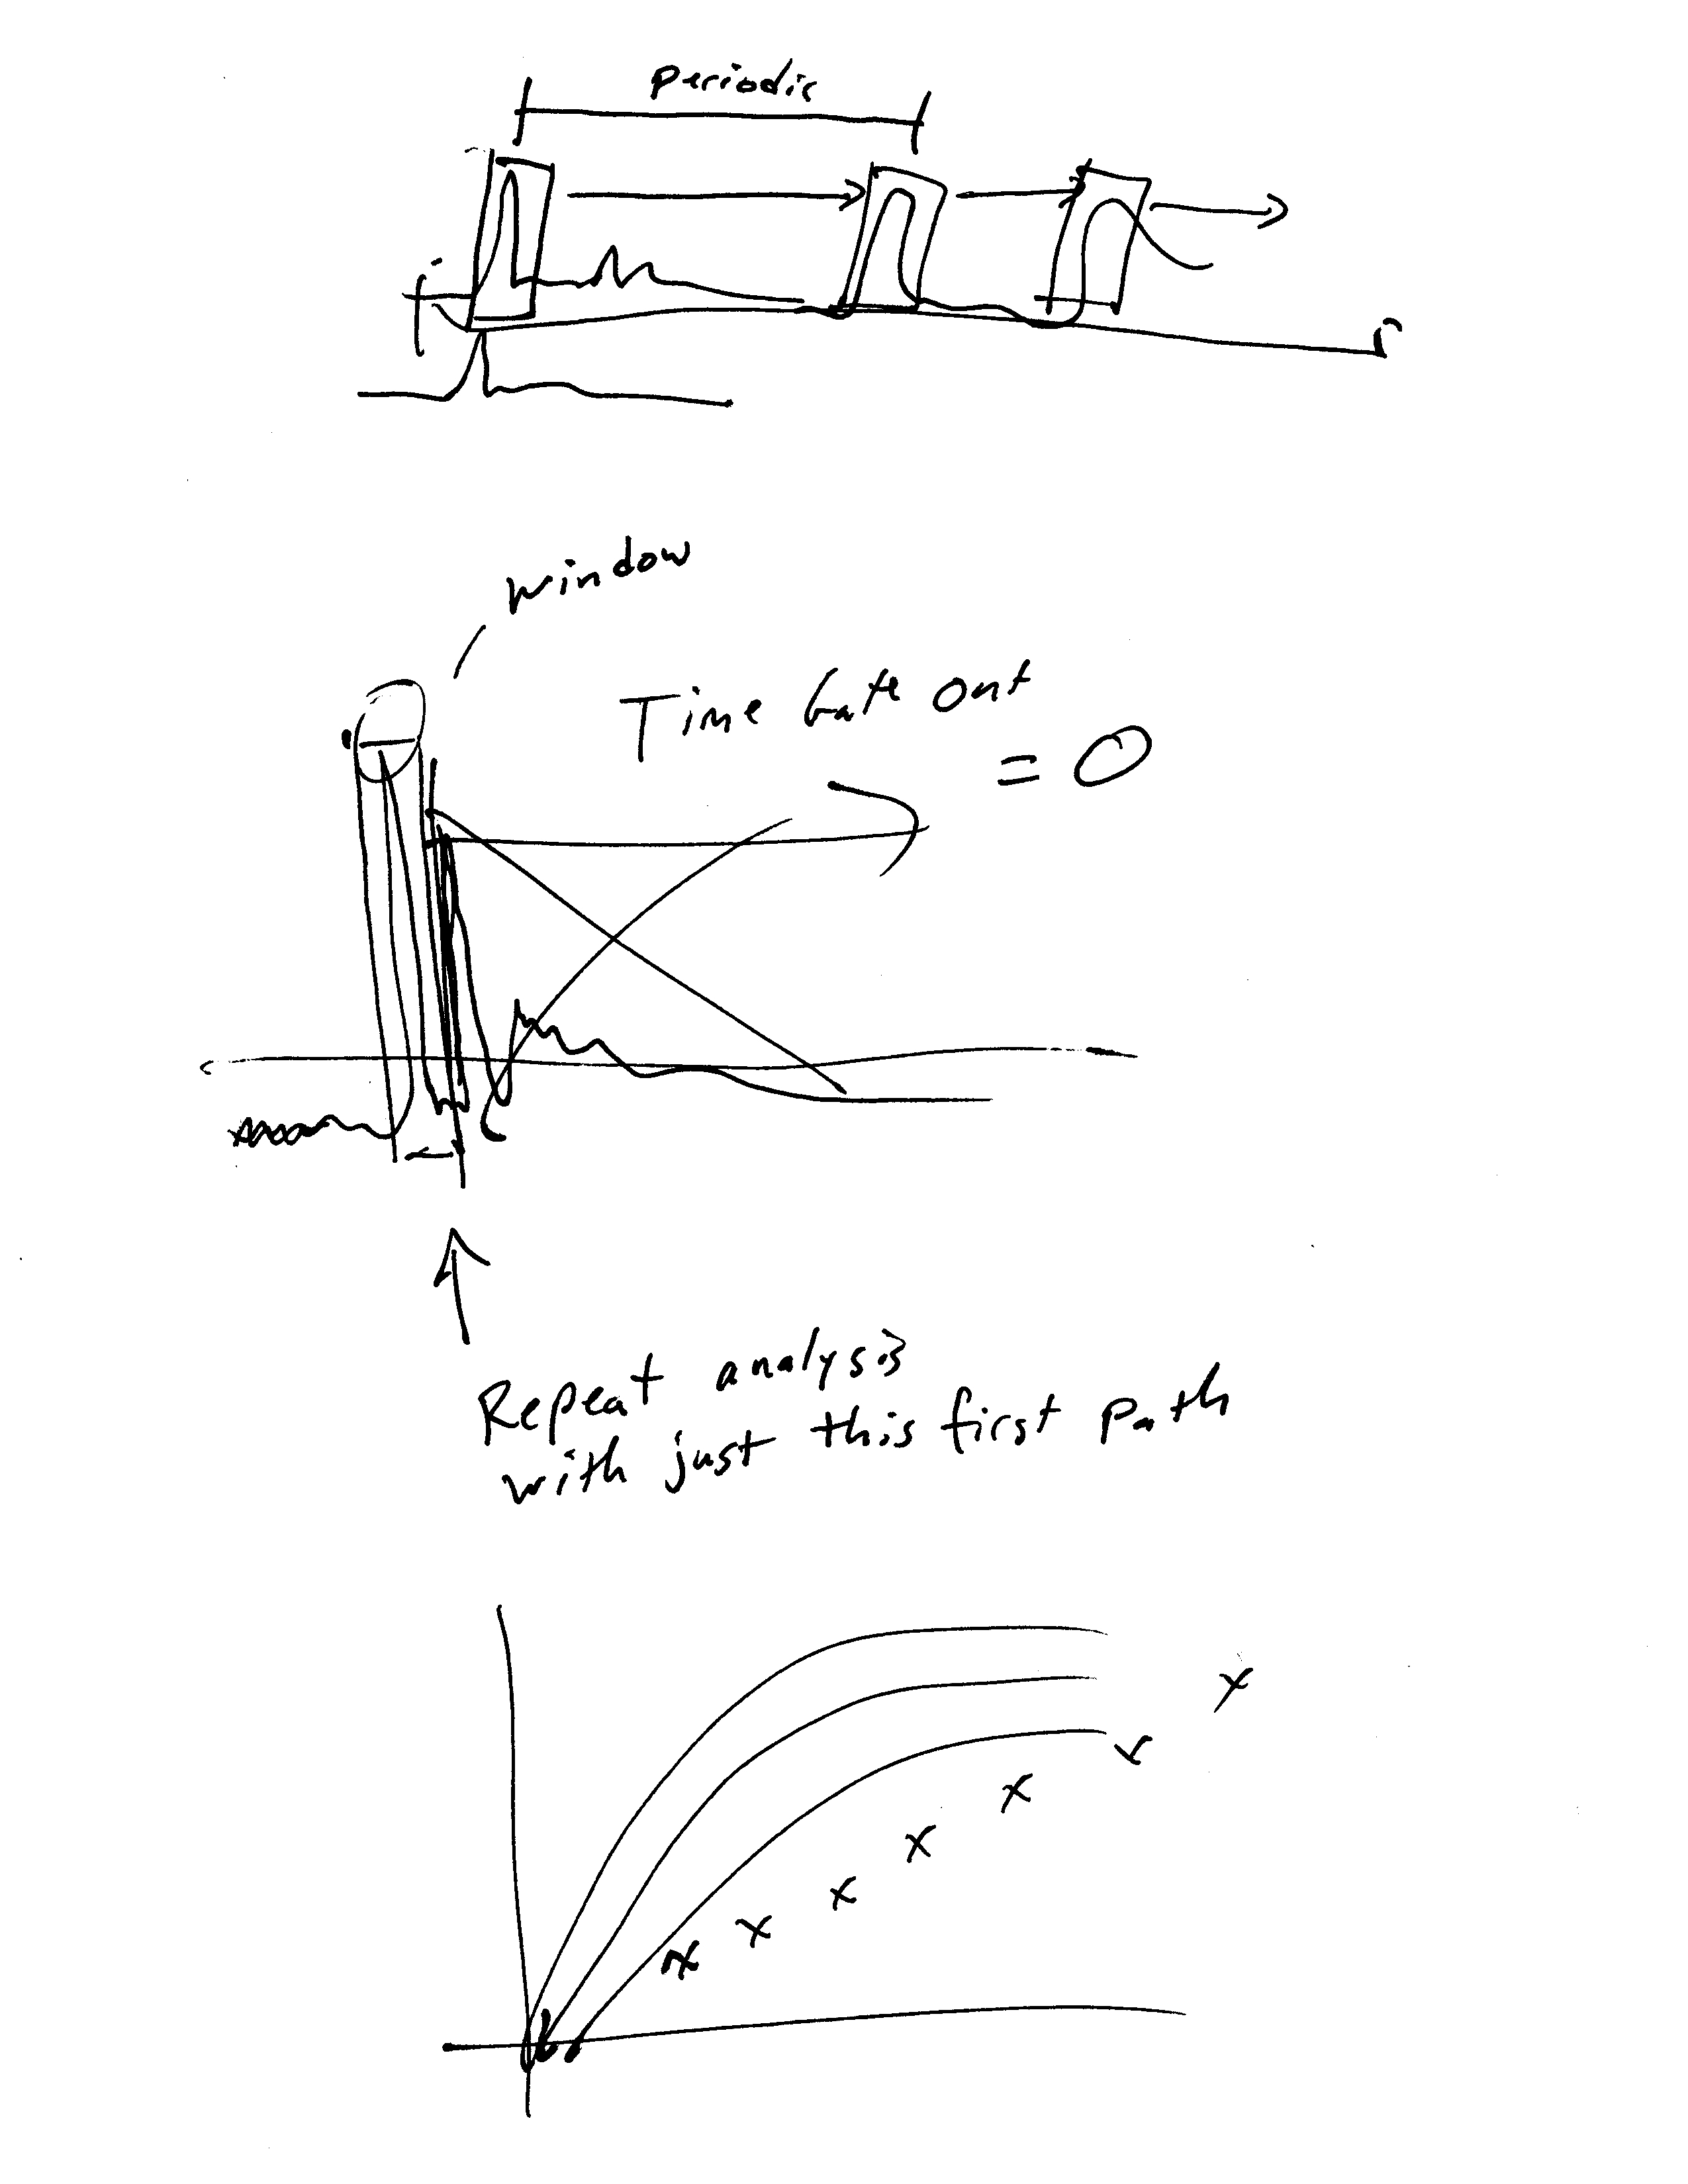 Periodic
window
Time Gate out
= 0
Repeat analysis
with just this first path